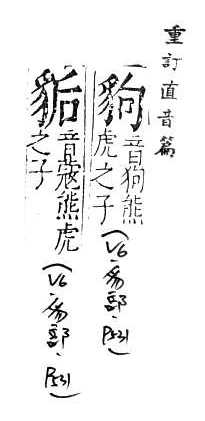 重訂直音篇
豿
音狗熊
虎之子
(V6.豸部.P531)
⿰豸后
音寇熊虎
之子
(V6.豸部.P531)